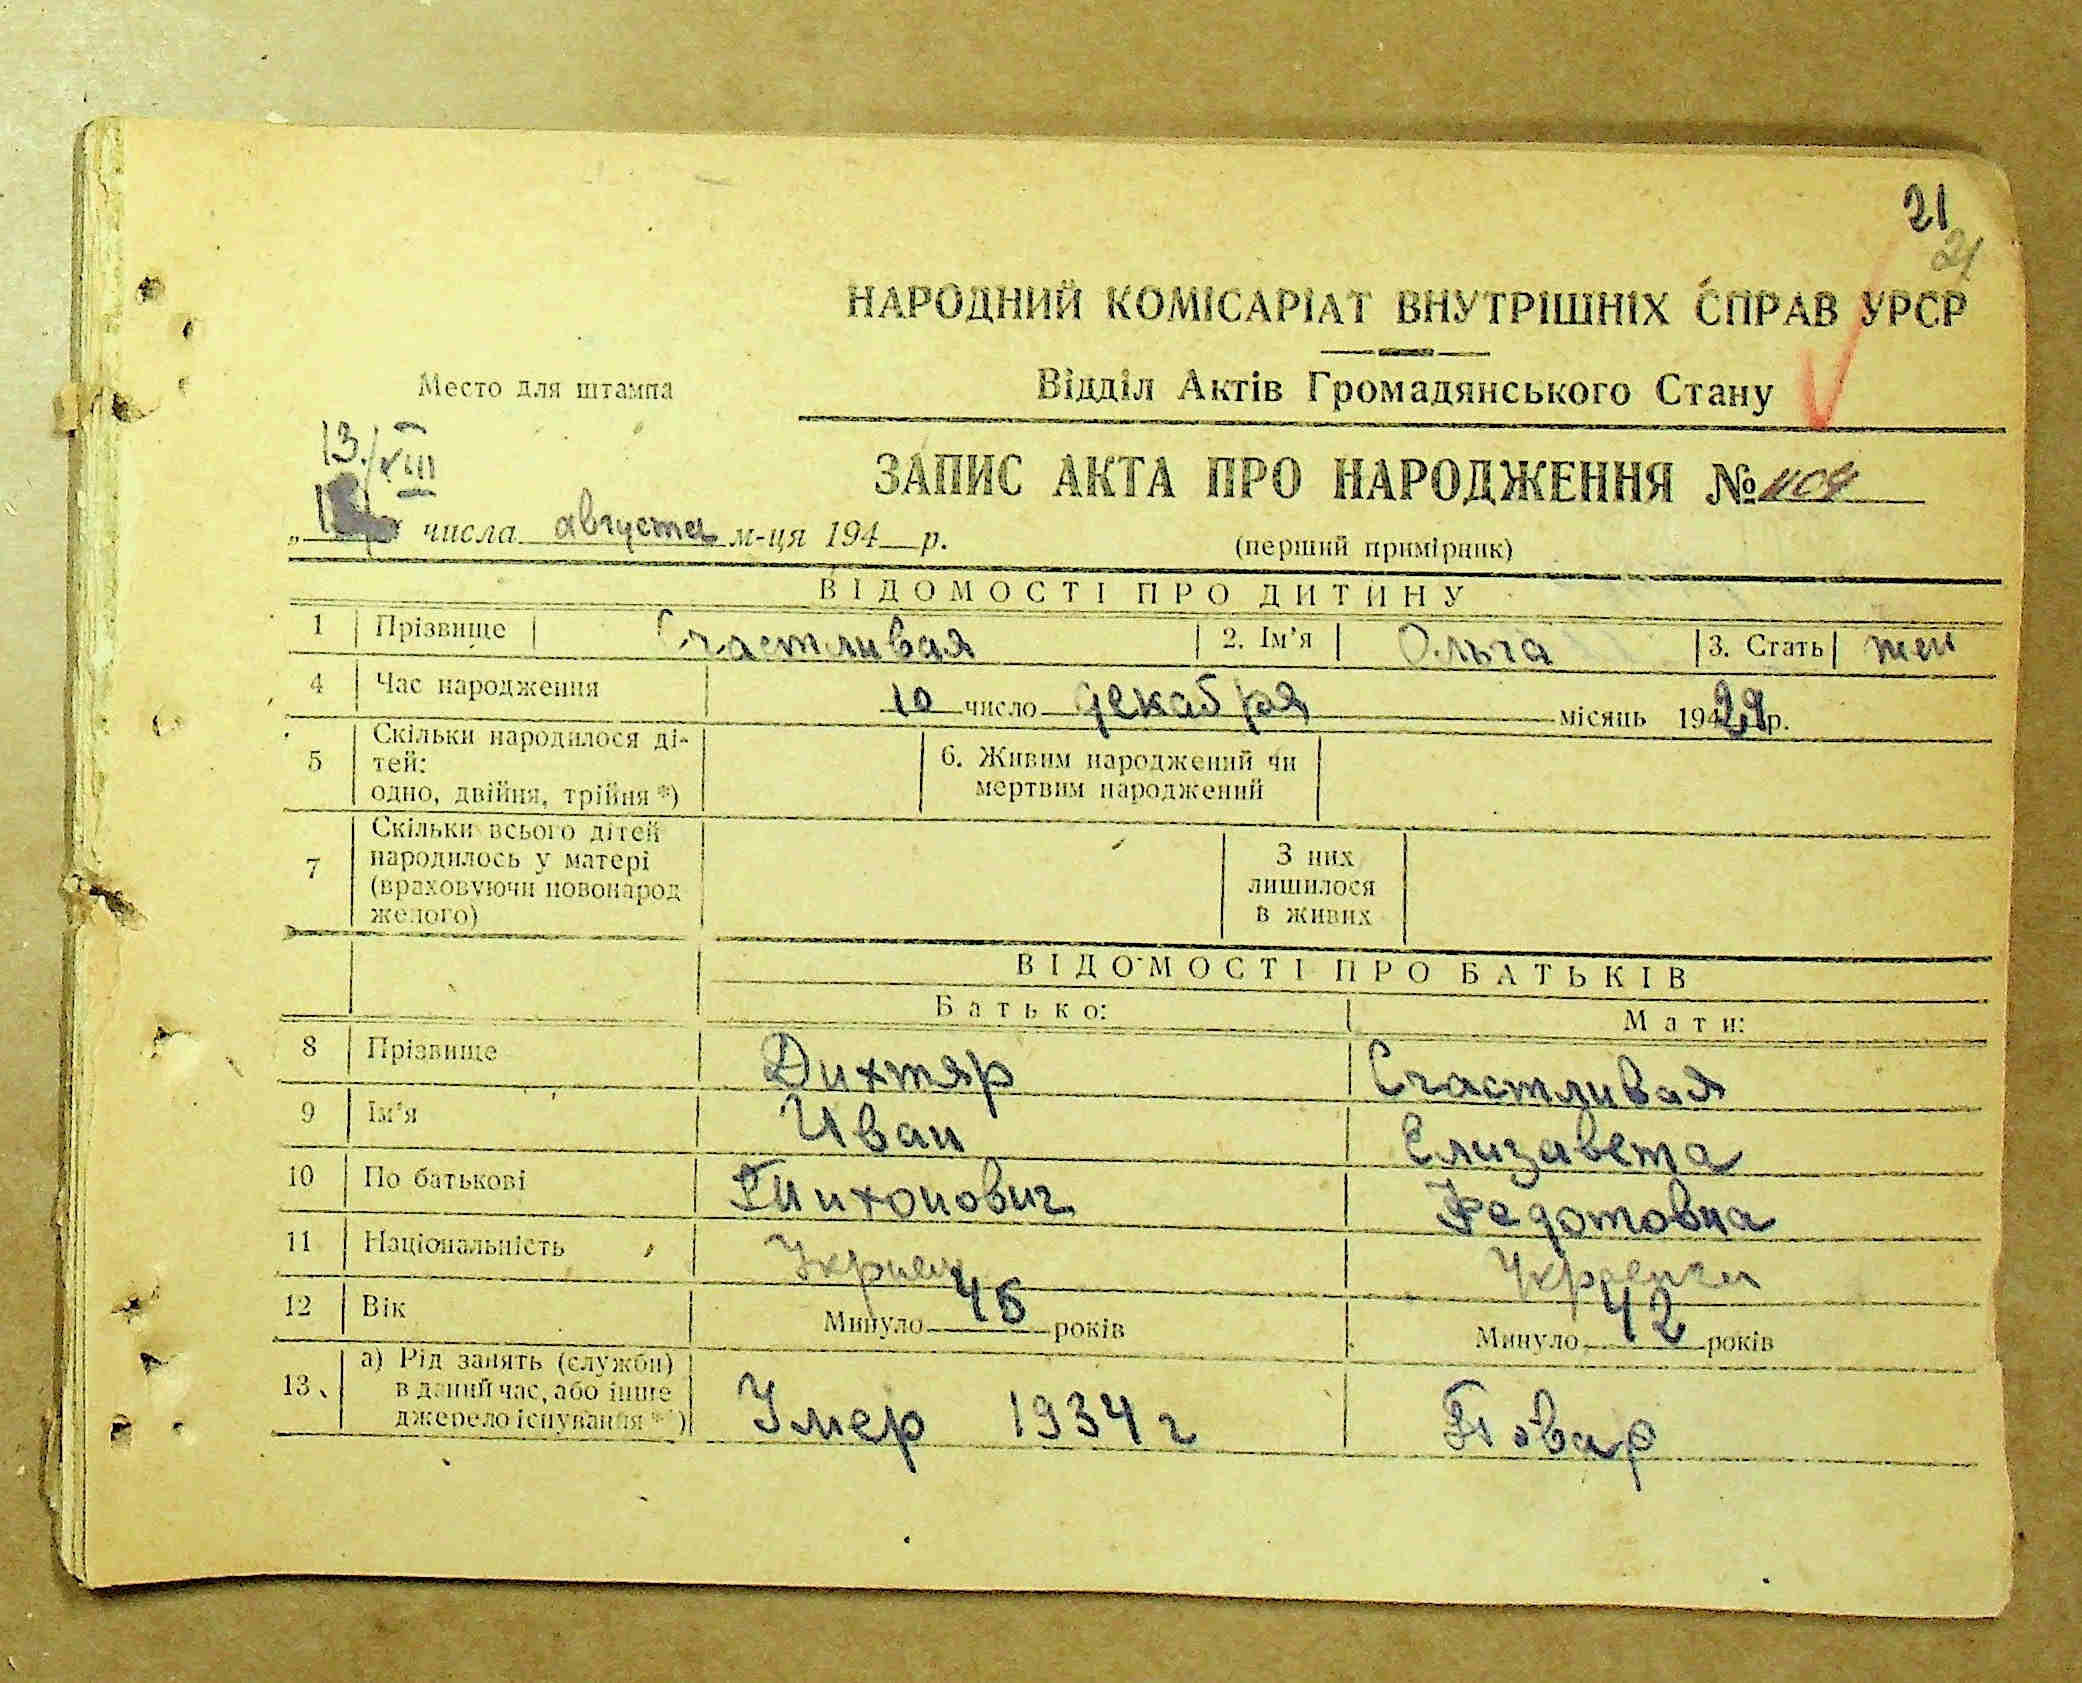 21
21
НАРОДНИЙ КОМІСАРІАТ ВНУТРІШНІХ СПРАВ УРСР
Место для штампа
Відділ Актів Громадянського Стану
13/VIII
ЗАПИС АКТА ПРО НАРОДЖЕННЯ №
„ числа августа м-ця 194 р.
(перший примірник)
ВІДОМОСТІ ПРО ДИТИНУ
1 Прізвище Счастливая 2. Ім'я Ольга 3. Стать жен
4 Час народження 10 число декабря місяць 1929 р.
5 Скільки народилося ді-
тей:
одно, двійня, трійня *)
6. Живим народжений чи
мертвим народжений
7 Скільки всього дітей
народилось у матері
(враховуючи новонарод
желого)
З них
лишилося
в живих
ВІДОМОСТІ ПРО БАТЬКІВ
Батько: Мати:
8 Прізвище Дихтяр Счастливая
9 Ім'я Иван Елизавета
10 По батькові Тихонович Федотовна
11 Національність
12 Вік Минуло 46 років Минуло 42 років
13 а) Рід занять (служби)
в даний час, або інше
джерело існування **)
Умер 1934 г Повар